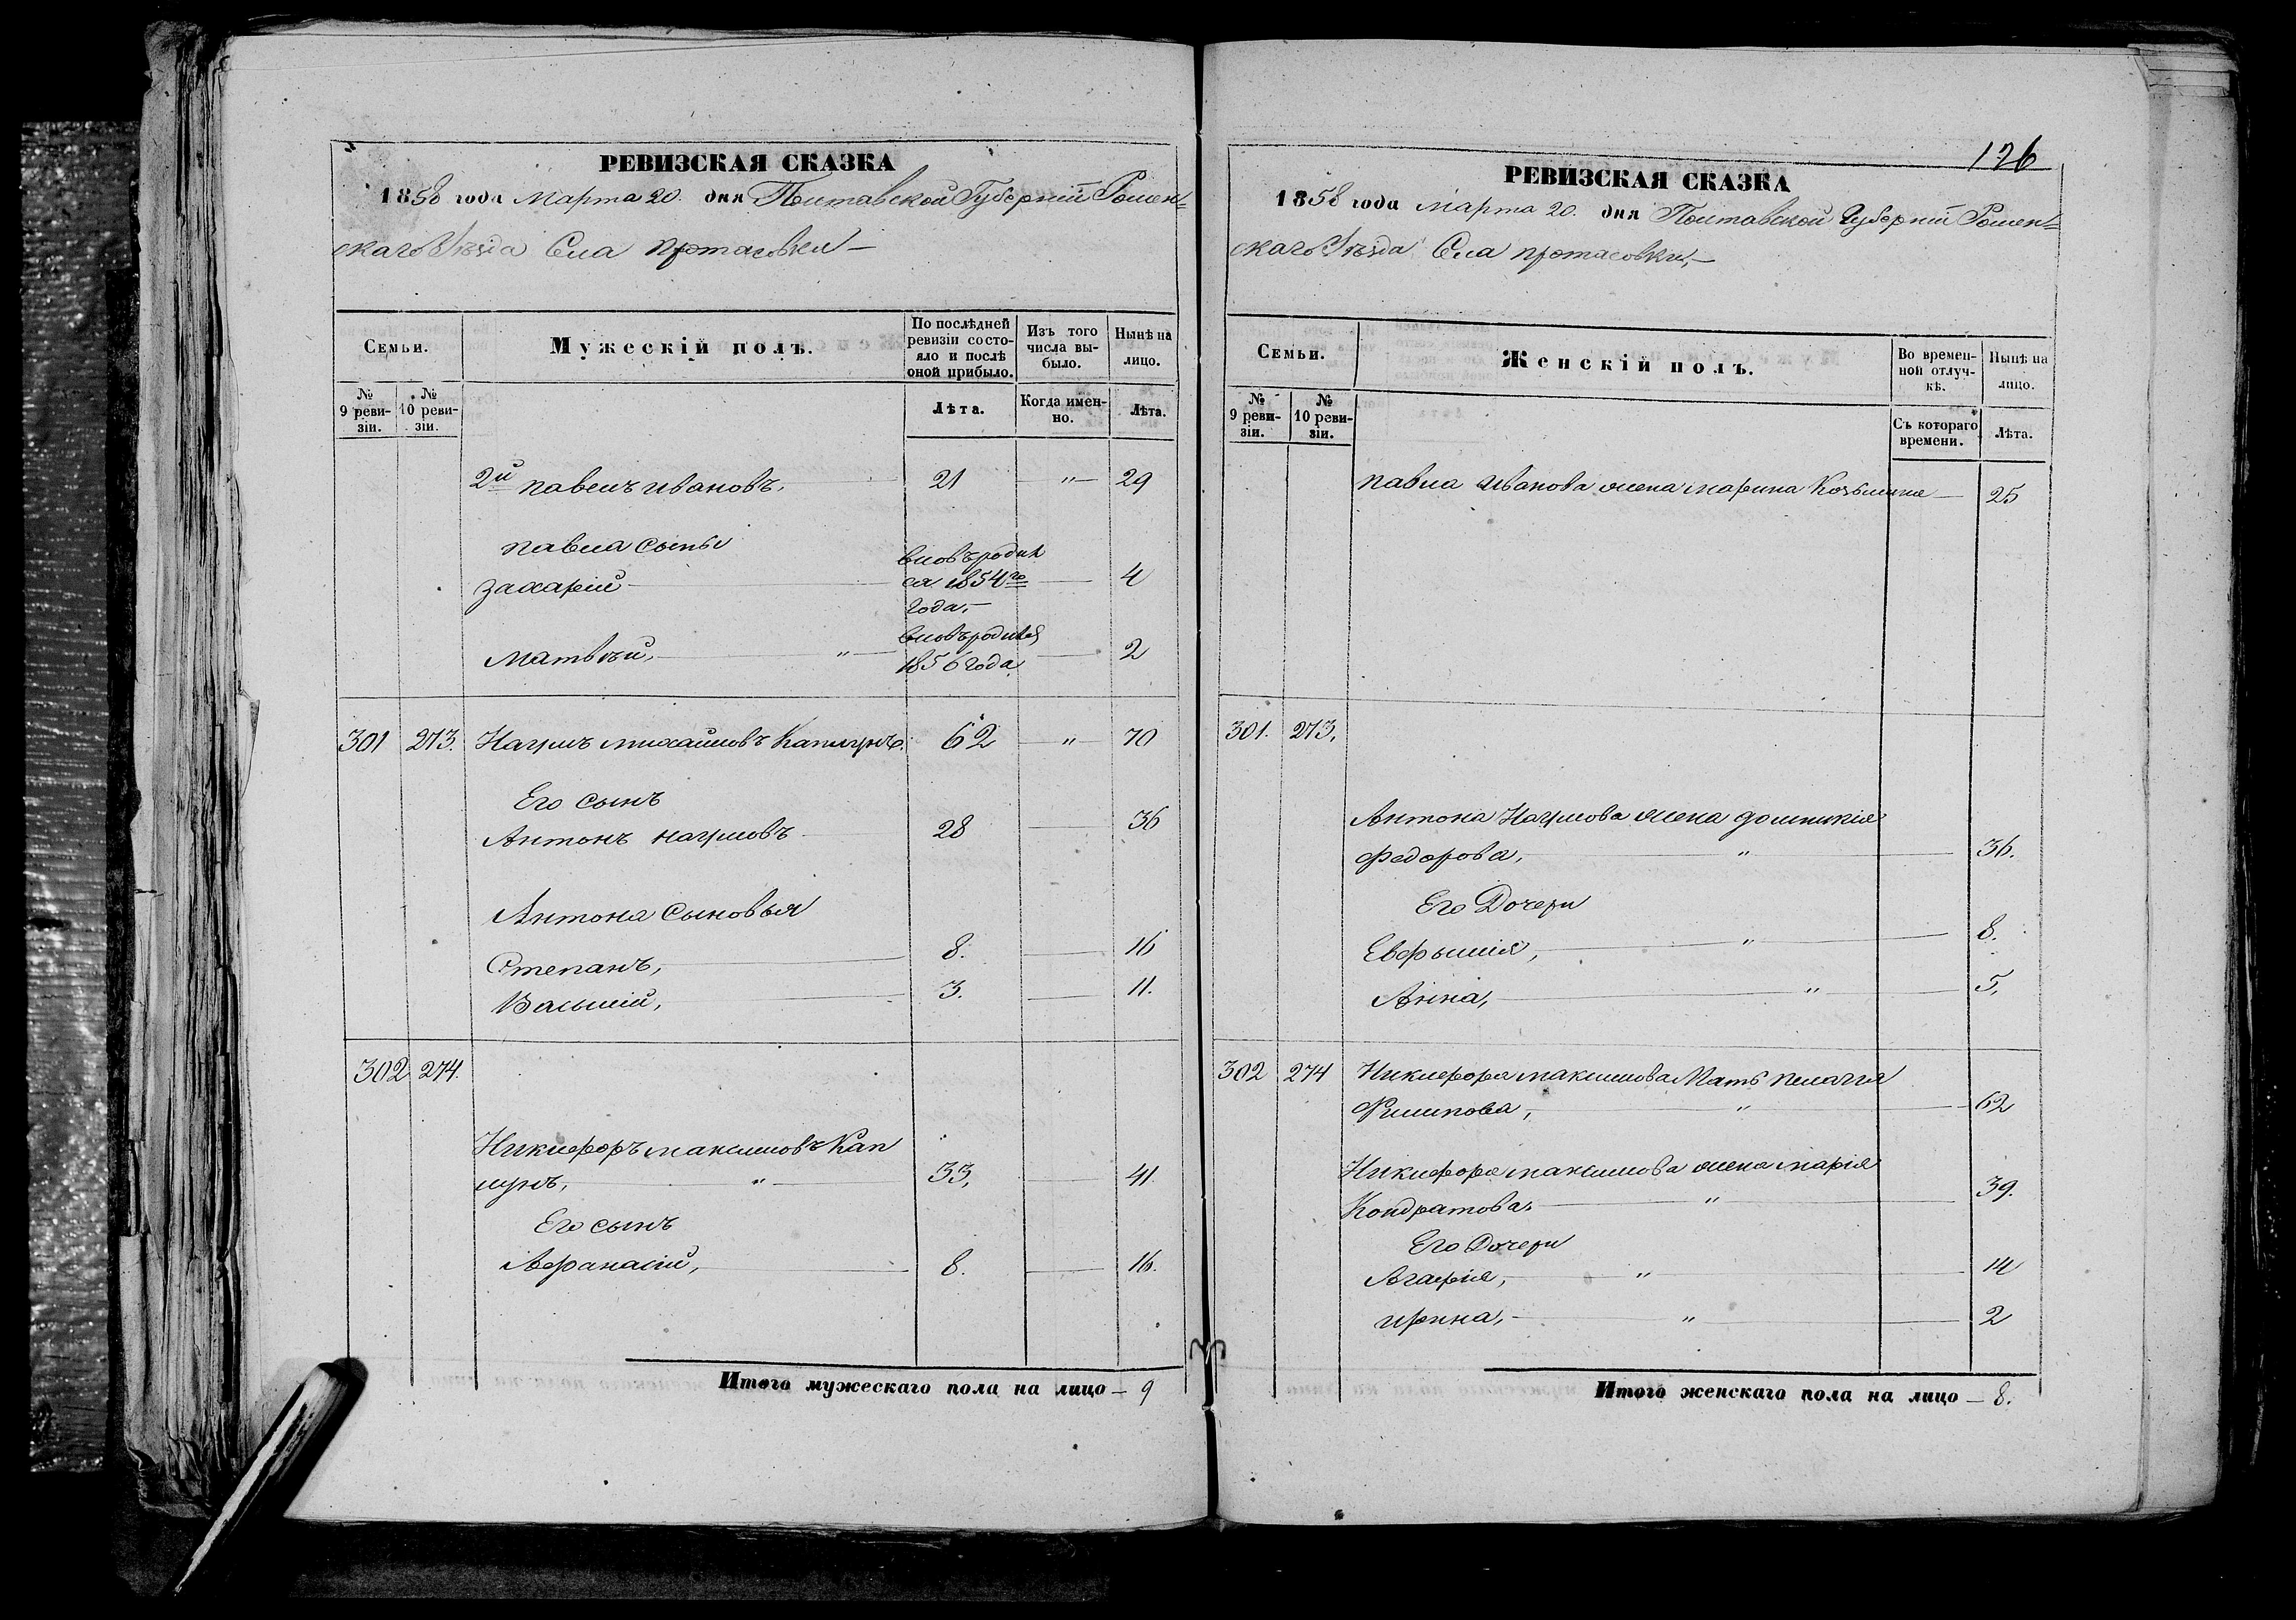 РЕВИЗСКАЯ СКАЗКА
1858 года марта 20. дня Полтавской Губерніи Ромен=
скаго Уезда Села протасовки —
Семьи.
Мужескій полъ.
По послѣдней ревизіи состо-
яло и послѣ
оной прибыло.
Изъ того
числа вы-
было.
Нынѣ на
лицо.
№
9 реви-
зіи.
№
10 реви-
зіи.
Лѣта.
Когда имен-
но.
Лѣта.
2й павелъ ивановъ, 21 " 29
павла сыны
захарій вновь родил
ся 1854го 4
года,
матвѣй, " вновь родился
1856 года 2
301 273. Наумъ михайловъ Каплунъ. 62 " 70
Его сынъ
Антонъ наумовъ 28 36
Антона сыновья
Степанъ, 8. 16
Василій, 3. 11.
302 274.
Никифоръ максимовъ Кап
лунъ, " 33, 41.
Его сынъ
Афанасій, 8. 16.
Итого мужескаго пола на лицо — 9
126
РЕВИЗСКАЯ СКАЗКА
1858 года марта 20. дня Полтавской Губерніи Ромен=
скаго Уезда Села протасовки, —
Семьи.
Женскій полъ.
Во времен-
ной отлуч-
кѣ.
Нынѣ на
лицо.
№
9 реви-
зіи.
№
10 реви-
зіи.
Съ котораго
времени.
Лѣта.
павла иванова жена марина Козьмина 25
301. 273.
Антона Наумова жена домникія
федорова, " 36.
Его Дочери
Евфимія, " 8.
Анна, " 5,
302 274 Никифора максимова Мать пелагія
Филипова, " 62
Никифора максимова жена марія
Кондратова, " 39.
Его Дочери
Агафія, " 14
ирина, " 2
Итого женскаго пола на лицо — 8.